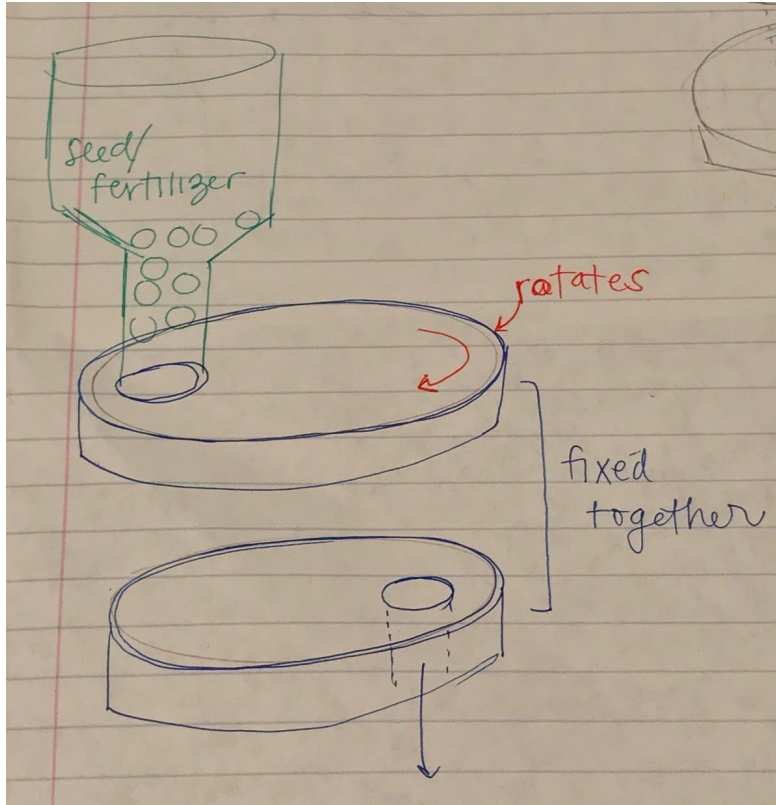 seed/
fertilizer
rotates
fixed
together